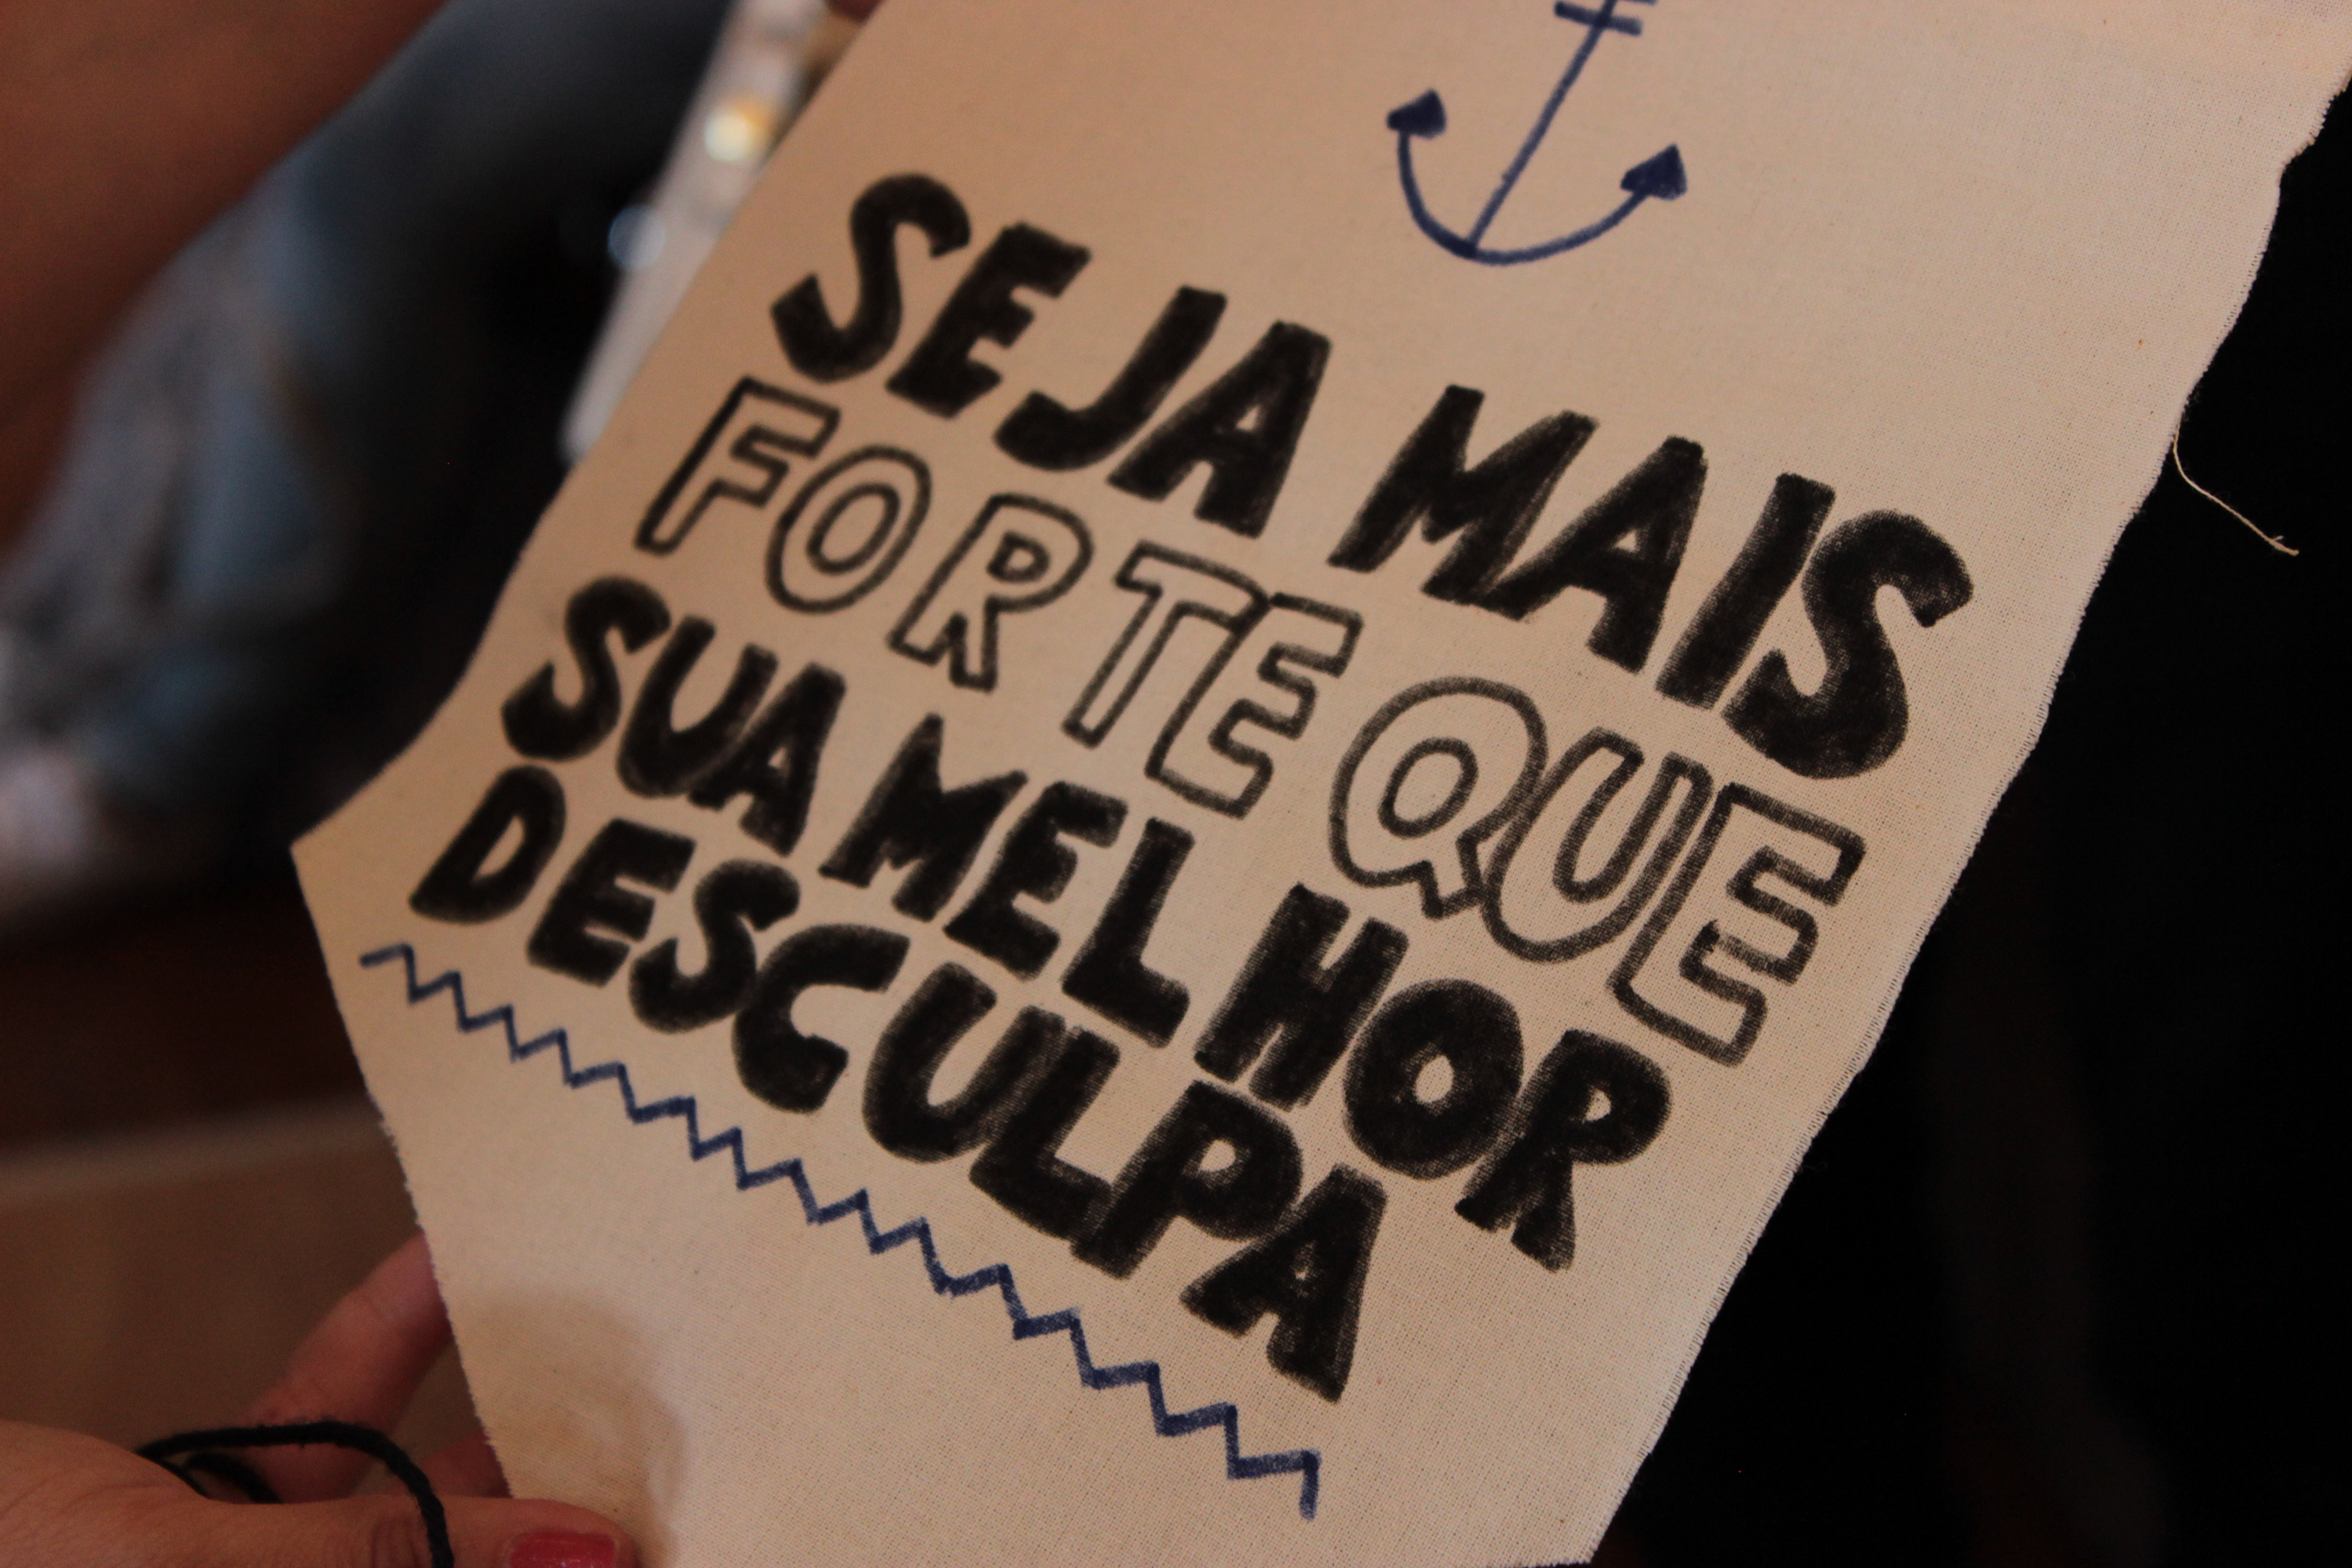 SEJA MAIS
FORTE QUE
SUA MELHOR
DESCULPA